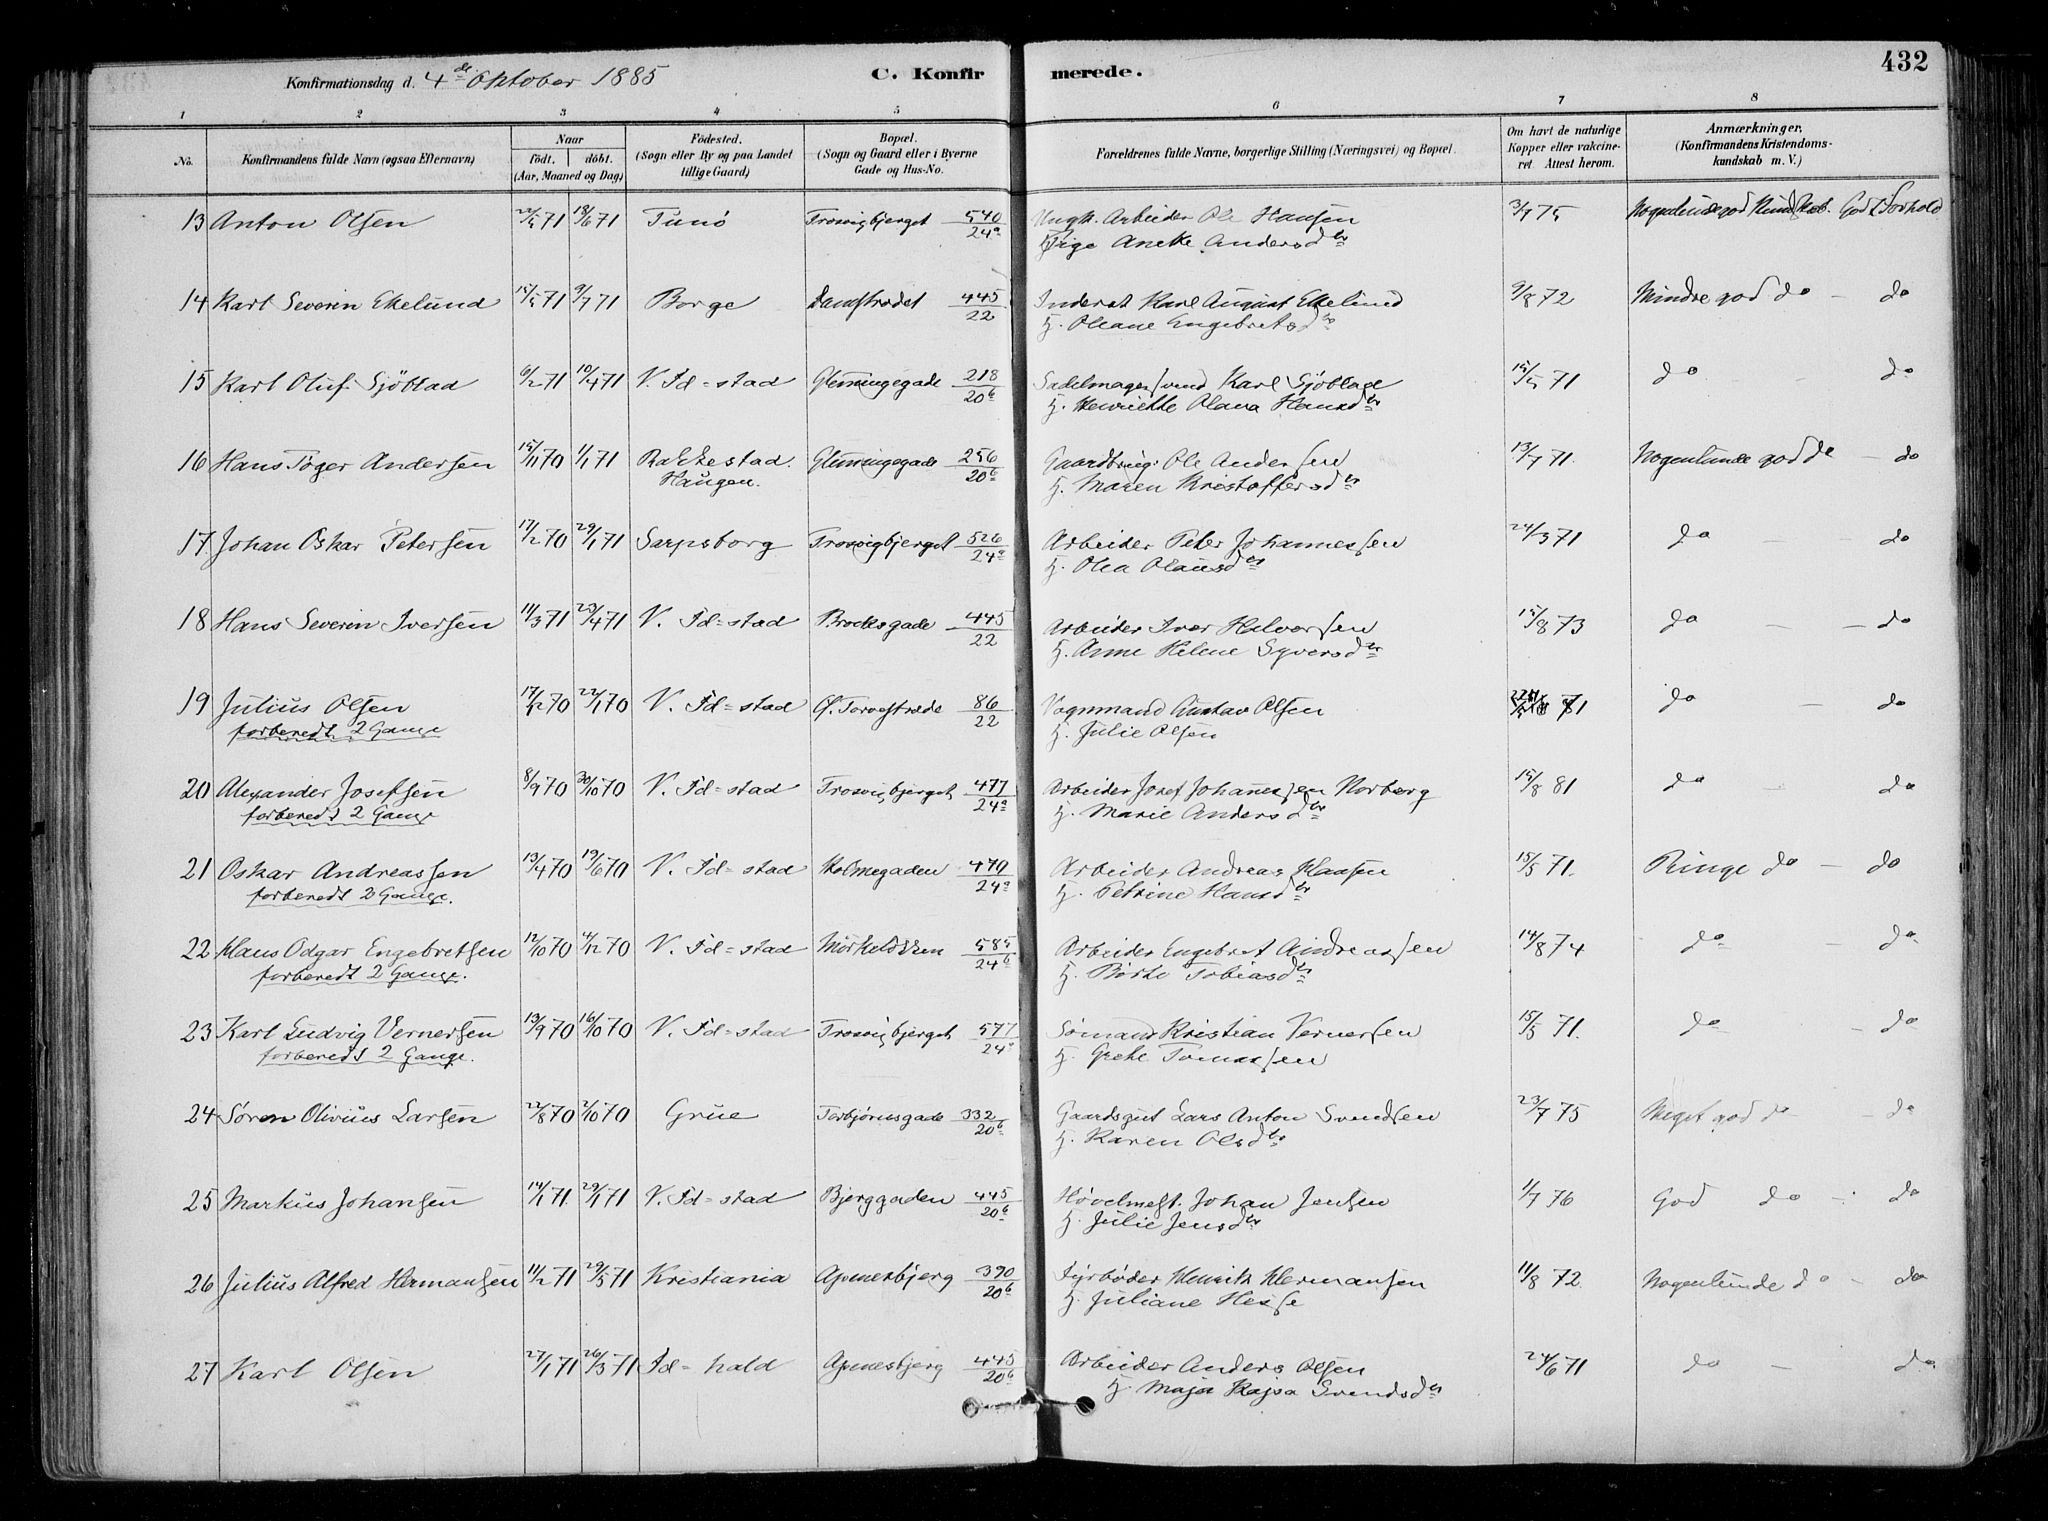 432
Konfirmationsdag d. 4de Oktober 1885
C. Konfirmerede.
1 2 3 4 5 6 7 8
No.
Konfirmandens fulde Navn (ogsaa Efternavn)
Naar
födt. döbt.
(Aar, Maaned og Dag)
Födested.
(Sogn eller By og paa Landet
tillige Gaard)
Bopæl.
(Sogn og Gaard eller i Byerne
Gade og Hus-No.
Forældrenes fulde Navne, borgerlige Stilling (Næringsvei) og Bopæl.
Om havt de naturlige
Kopper eller vakcine-
ret. Attest herom.
Anmærkninger,
(Konfirmandens Kristendoms-
kundskab m. V.)
13 Anton Olsen 18/6 71 Tunø Trosvigbjerget 540/24a Ungk. Arbeider Ole Hansen 3/7 75 Nogenlunde god Kundskab. Godt Forhold
Pige Aneke Andersdtr
14 Karl Severin Ekelund 15/5 71 9/7 71 Borge Damstrædet 445/22 Inderst Karl August Ekelund 9/8 72 Mindre god do - do
H. Oleane Engebretsdtr
15 Karl Oluf Sjöblad 6/2 71 10/4 71 V. Fd=stad Glemmingegade 218/20b Sadelmagersvend Karl Sjöblad 15/5 71 do - do
H. Henriette Olava Hansdtr
16 Hans Töger Andersen 15/11 70 1/1 71 Rakkestad. Glemmingegade 256/20b Gaardbrug: Ole Andersen 13/7 71. Nogenlunde god do - do
Haugen. H. Maren Kristoffersdtr
17 Johan Oskar Petersen 17/12 70 29/1 71 Sarpsborg Trosvigbjerget 526/24a Arbeider Peter Johannessen 24/3 71 do - - do
H. Olea Olausdtr
18 Hans Severin Iversen 11/3 71 23/4 71 V. Fd=stad Brochsgade 445/22 Arbeider Iver Halvorsen 15/8 73 do - - do
H. Anne Helene Syversdtr
19 Julius Olsen 70 V. Fd=stad Ø. Torvestræde 86/22 Vognmand Gustav Olsen do - do
forberedt 2 Gange H. Julie Olsen
20 Alexander Josefsen 8/9 70 30/10 70 V. Fd=stad Trosvigbjerget 477/24a Arbeider Josef Johannessen Norberg 15/8 81 do - do
forberedt 2 Gange H. Marie Andersdtr
21 Oskar Andreassen 13/4 70 19/6 70 V. Fd=stad Holmegaden 479/24a Arbeider Andreas Hansen 15/5 71. Ringe do - do
forberedt 2 Gange. H. Petrine Hansdtr
22 Hans Odgar Engebretsen 12/10 70 4/12 70 V. Fd=stad 585/24b Arbeider Engebret Andreassen 14/8 74 do - do
forberedt 2 Gange. H. Börte Tobiasdtr
23 Karl Ludvig Vernersen 13/9 70 16/10 70 V. Fd=stad Trosvigbjerget 577/24a Sömand Kristian Vernersen 15/5 71. do - do
forberedt 2 Gange. H. Grete Tomassen
24 Søren Olivius Larsen 22/8 70 2/10 70 Grue Torbjörnsgade 332/20b Gaardsgut Lars Anton Svendsen 23/7 75 Meget god do - do
H. Karen Olsdtr
25 Markus Johansen 14/1 71. 29/1 71 V. Fd=stad Bjerggaden 445/20b Høvelmest. Johan Jensen 1/7 76 God do - do
H. Julie Jensdtr
26 Julius Alfred Hermansen 11/2 71 29/5 71 Kristiania Apenesbjerg 390/20b Fyrbøder Henrik Hermansen 11/8 72 Nogenlunde do - do
H. Juliane Hesse
27 Karl Olsen 27/1 71 26/3 71 Fd=hald Apenesbjerg 445/20b Arbeider Anders Olsen 24/6 71 do - do
H. Maja Kajsa Svendsdtr